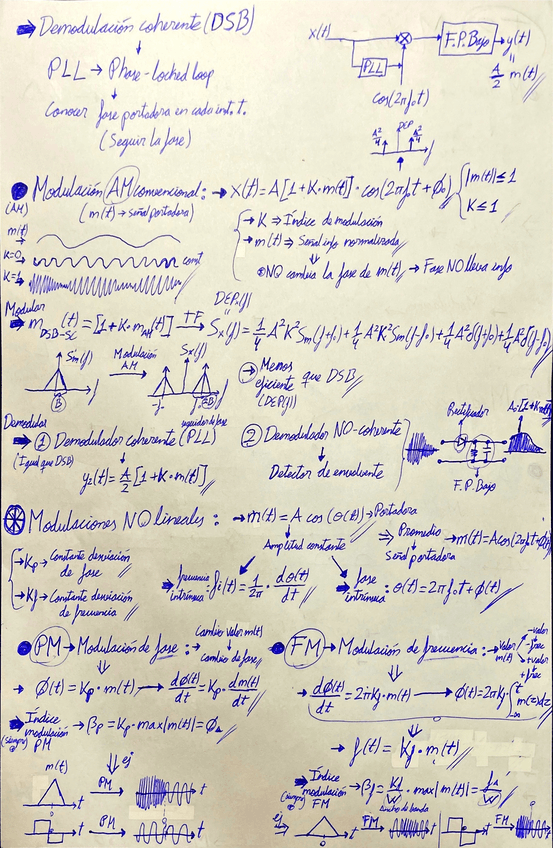 ➡ Demodulación coherente (DSB)
PLL → Phase-locked loop
Conocer fase portadora en cada inst. t.
(Seguir la fase)
x(t)
PLL
F.P.Bajo
y(t)
"
A/2 m(t)
cos(2πf₀t)
A²/4 DEP A²/4
f
● Modulación AM convencional: → x(t) = A[1+K·m(t)]·cos(2πf₀t+ϕ₀) { |m(t)| ≤ 1
K ≤ 1
(m(t) → señal portadora)
(AM)
m(t) →
K=0 → cont
K=1 →
→ K ⇒ Índice de modulación
→ m(t) ⇒ Señal info normalizada
⊙ NO cambia la fase de m(t) → Fase NO lleva info
Modular
➡ m DSB-SC (t) = [1+K·m AM (t)] TF→ Sx(f) = 1/4 A²K²Sm(f+f₀) + 1/4 A²K²Sm(f-f₀) + 1/4 A²δ(f+f₀) + 1/4 A²δ(f-f₀)
DEP(f)
"
Sm(f)
Modulación
AM
Sx(f)
B
f
-f₀
f₀ 2B
→ Menos
eficiente que DSB
(DEP(f))
Demodular
➡ ① Demodulador coherente (PLL)
seguidor de fase
(Igual que DSB)
y₂(t) = A/2 [1+K·m(t)]
② Demodulador NO-coherente
Detector de envolvente
Rectificador
F.P.Bajo
⊛ Modulaciones NO lineales: → m(t) = A cos(θ(t)) → Portadora
Amplitud constante
⇒ Promedio → m(t) = A cos(2πf₀t+ϕ(t))
Señal portadora
→ Kp → Constante desviación
de fase
→ Kf → Constante desviación
de frecuencia
➡ frecuencia
intrínseca: fi(t) = 1/2π · dθ(t)/dt
➡ fase
intrínseca: θ(t) = 2πf₀t + ϕ(t)
● PM → Modulación de fase: → Cambio valor m(t)
cambio de fase
→ ϕ(t) = Kp·m(t) → dϕ(t)/dt = Kp·dm(t)/dt
➡ Índice
modulación → βp = Kp·max|m(t)| = ϕΔ
(siempre) PM
ej
m(t)
t
PM
t
t
PM
t
● FM → Modulación de frecuencia: → valor
m(t)
-valor
-frec
+valor
+frec
→ dϕ(t)/dt = 2πKf·m(t) → ϕ(t) = 2πKf ∫ m(τ)dτ
-∞
t
→ f(t) = Kf·m(t)
➡ Índice
modulación → βf = Kf/W · max|m(t)| = fΔ/W
(siempre) FM
ancho de banda
ej
FM
t
t
FM
t